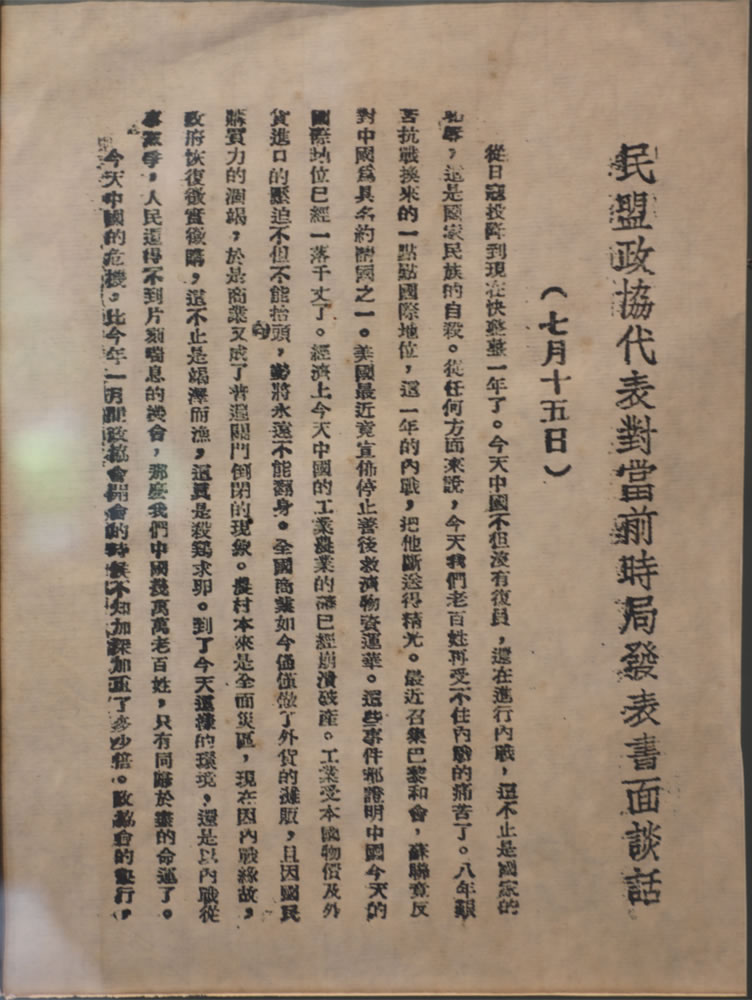 民盟政協代表對當前時局發表書面談話
(七月十五日)
從日寇投降到現在快整整一年了。今天中國不但沒有復員,還在進行內戰,這不止是國家的
恥辱,這是國家民族的自殺。從任何方面來說,今天我們老百姓再受不住內戰的痛苦了。八年艱
苦抗戰換來的一點點國際地位,這一年的內戰,把他斷送得精光。最近召集巴黎和會,蘇聯竟反
對中國為具名約請國之一。美國最近竟宣佈停止善後救濟物資運華。這些事件都證明中國今天的
國際地位已經一落千丈了。經濟上今天中國的工業農業的確已經崩潰破產。工業受本國物價及外
貨進口的壓迫不但不能抬頭,勢將永遠不能翻身。全國商業如今僅僅做了外貨的攤販,且因國民
購買力的涸竭,於是商業又成了普遍關門倒閉的現象。農村本來是全面災區,現在因內戰緣故,
政府恢復徵實徵購,這不止是竭澤而漁,這真是殺鷄求卵。到了今天這樣的環境,還是以內戰從
事黨爭,人民還得不到片刻喘息的機會,那麼我們中國幾萬萬老百姓,只有同歸於盡的命運了。
今天中國的危機,比今年一月間政協會開會的時候不知加深加重了多少倍。政協會的舉行,